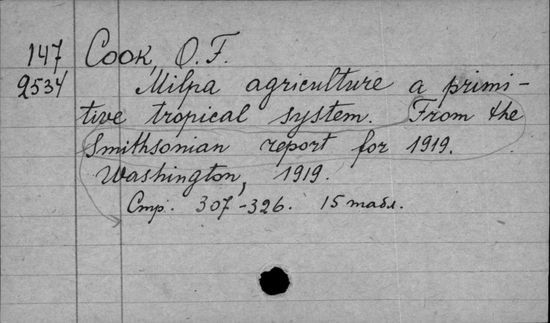 147 Cook, O. F.
9534 Milpa agriculture a primi-
tive tropical system. From the
Smithsonian report for 1919.
Washington, 1919.
Стр. 307-326. 15 табл.